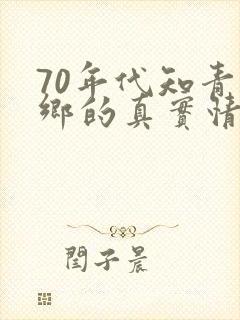 70年代知青
鄉的真實情
閏子晨